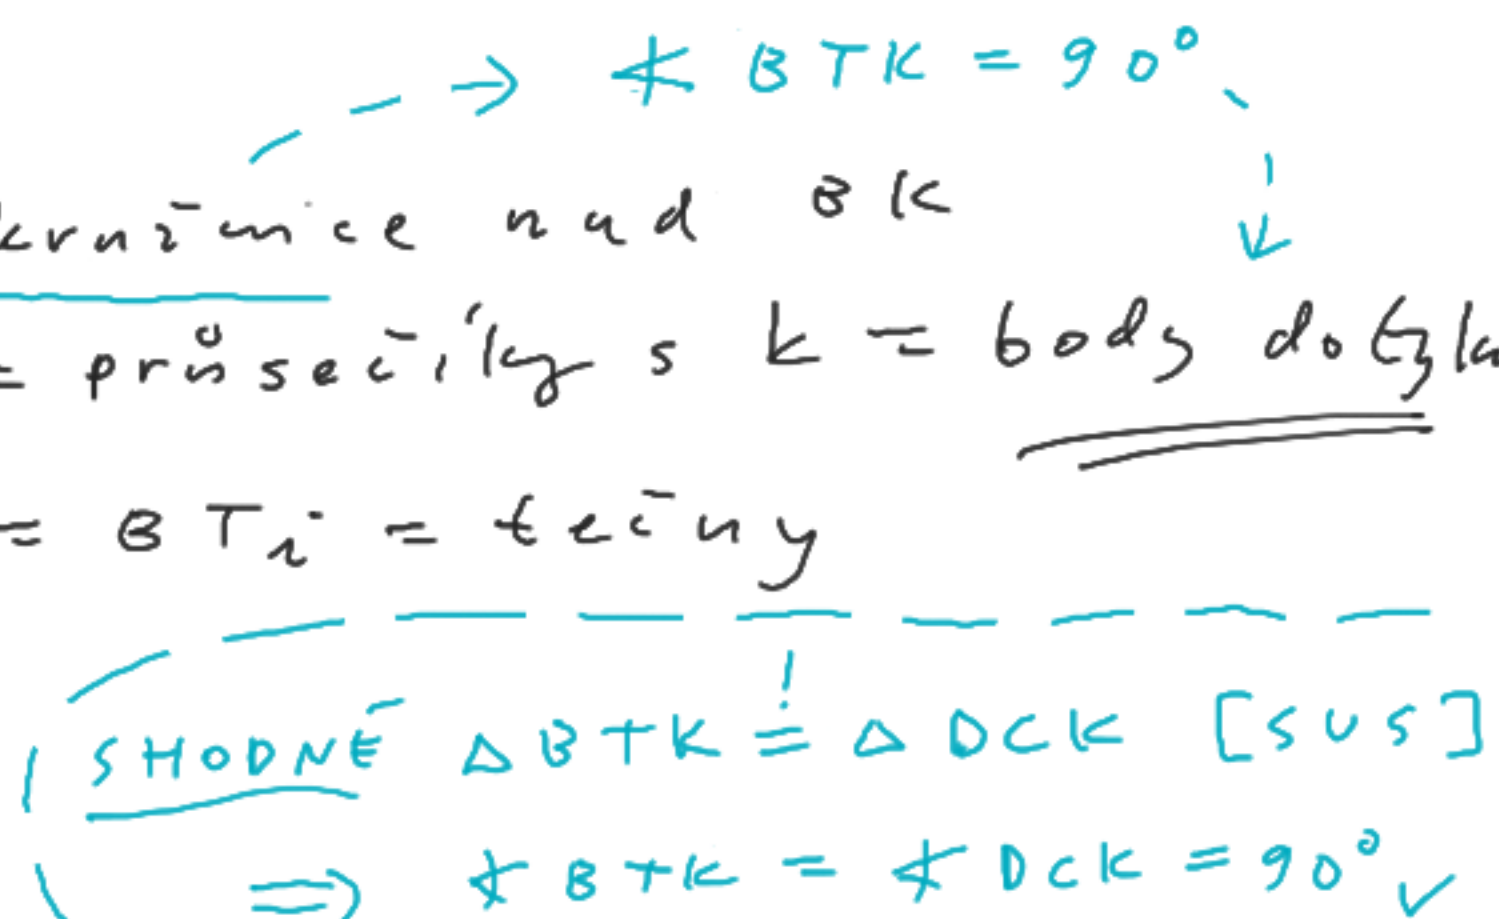 → ∢ BTK = 90°
kružnice nad BK
= průsečíky s k = body dotyku
= BTi = tečny
SHODNÉ △BTK ≟ △DCK [SUS]
⇒ ∢BTK = ∢DCK = 90° ✓